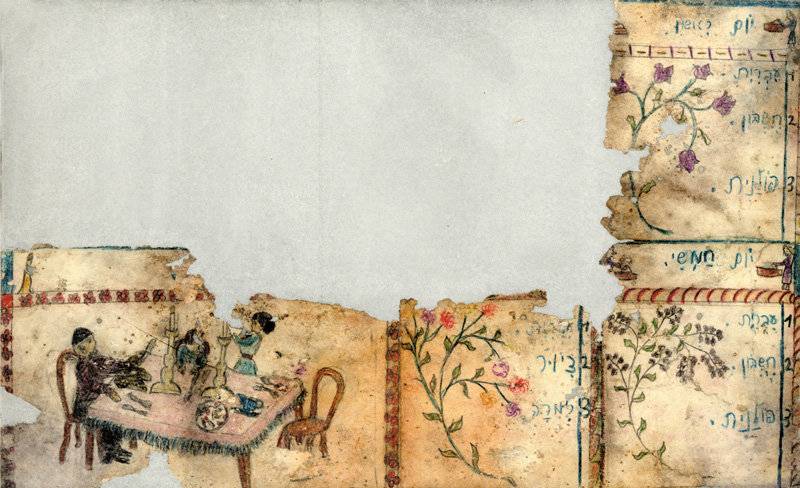 יום ראשון.
1 עברית.
2 חשבון.
3 פולנית.
יום חמשי.
1 עברית
2 חשבון.
3 פולנית.
2 ציור
3 זמרה